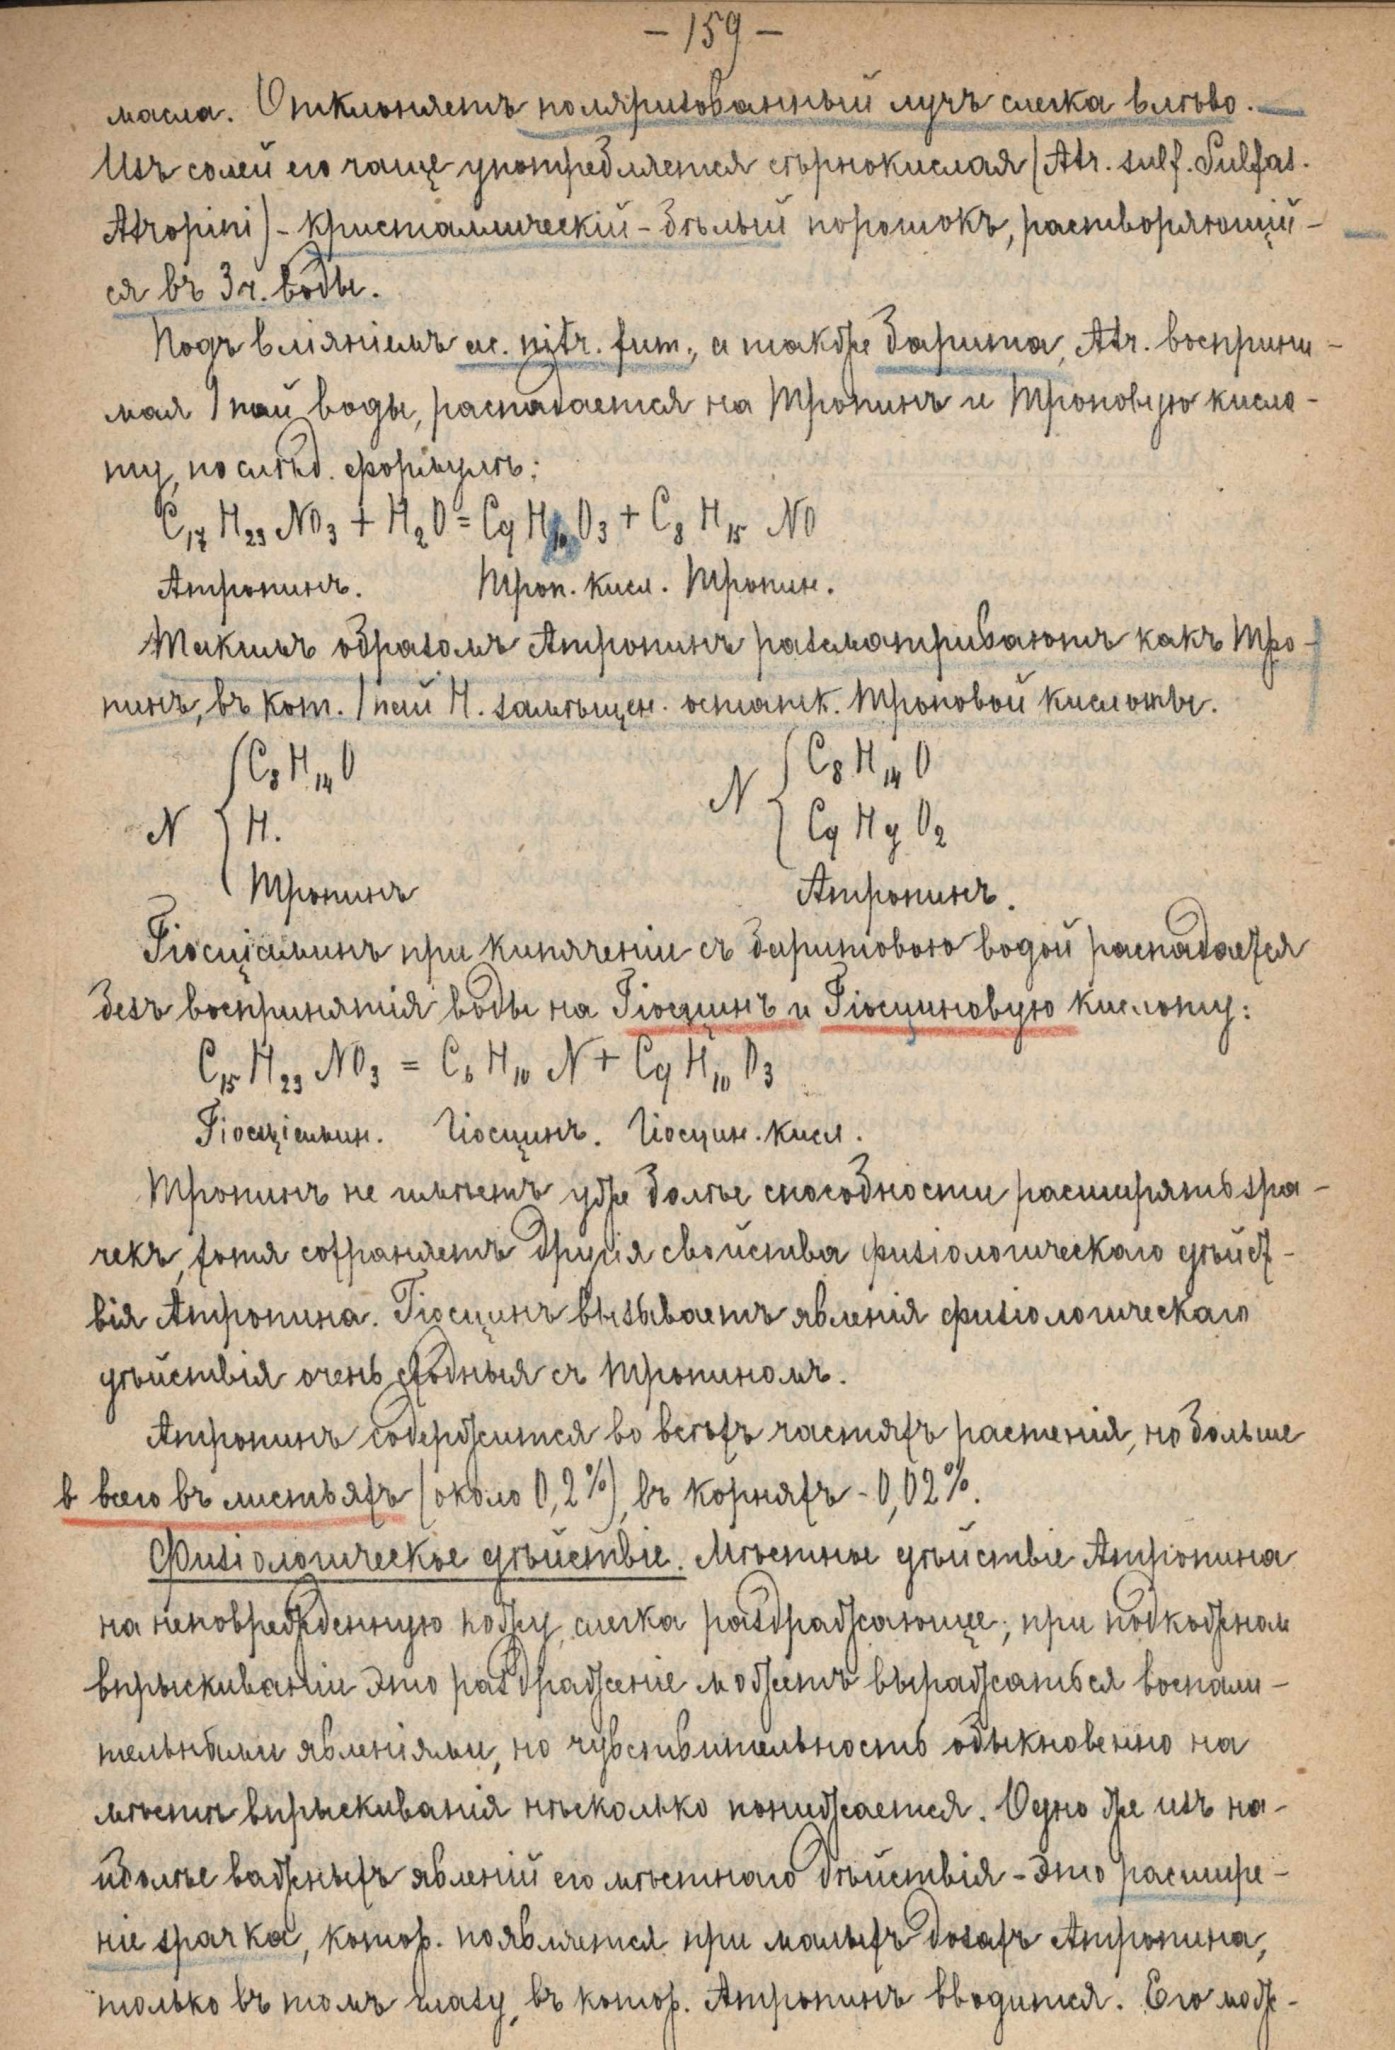 — 159 —
масла. Отклоняетъ поляризованный лучъ слегка влѣво. —
Изъ солей его чаще употребляется сѣрнокислая (Atr. sulf. Sulfas.
Atropini) - кристаллическій - бѣлый порошокъ, растворяющій-
ся въ 3 ч. воды.
Подъ вліяніемъ ac. nitr. fum., а также барита, Atr. восприни-
мая 1 пай воды, распадается на Тропинъ и Троповую кисло-
ту, по слѣд. формулѣ:
C₁₇ H₂₃ NO₃ + H₂O = C₉ H₁₀ O₃ + C₈ H₁₅ NO
Атропинъ. Троп. кисл. Тропин.
Такимъ образомъ Атропинъ разсматриваютъ какъ Тро-
пинъ, въ кот. 1 пай H. замѣщен. остатк. Троповой кислоты.
C₈ H₁₄ O C₈ H₁₄ O
N { H. N { C₉ H₉ O₂
Тропинъ Атропинъ.
Гіосціаминъ при кипяченіи съ баритовою водой распадается
безъ воспринятія воды на Гіосцинъ и Гіосциновую кислоту:
C₁₅ H₂₃ NO₃ = C₆ H₁₀ N + C₉ H₁₀ O₃
Гіосціамин. Гіосцинъ. Гіосцин. кисл.
Тропинъ не имѣетъ уже болѣе способности расширять зра-
чекъ, хотя сохраняетъ другія свойства физіологическаго дѣйст-
вія Атропина. Гіосцинъ вызываетъ явленія физіологическаго
дѣйствія очень сходныя съ Тропиномъ.
Атропинъ содержится во всѣхъ частяхъ растенія, но больше
в всего въ листьяхъ (около 0,2%), въ корняхъ - 0,02%.
Физіологическое дѣйствіе. Мѣстное дѣйствіе Атропина
на неповрежденную кожу, слегка раздражающее; при подкожном
впрыскиваніи это раздраженіе можетъ выражаться воспали-
тельными явленіями, но чувствительность обыкновенно на
мѣстѣ впрыскиванія нѣсколько понижается. Одно же изъ на-
иболѣе важныхъ явленій его мѣстнаго дѣйствія - это расшире-
ніе зрачка, котор. появляется при малыхъ дозахъ Атропина,
только въ томъ глазу, въ котор. Атропинъ вводится. Его мож-